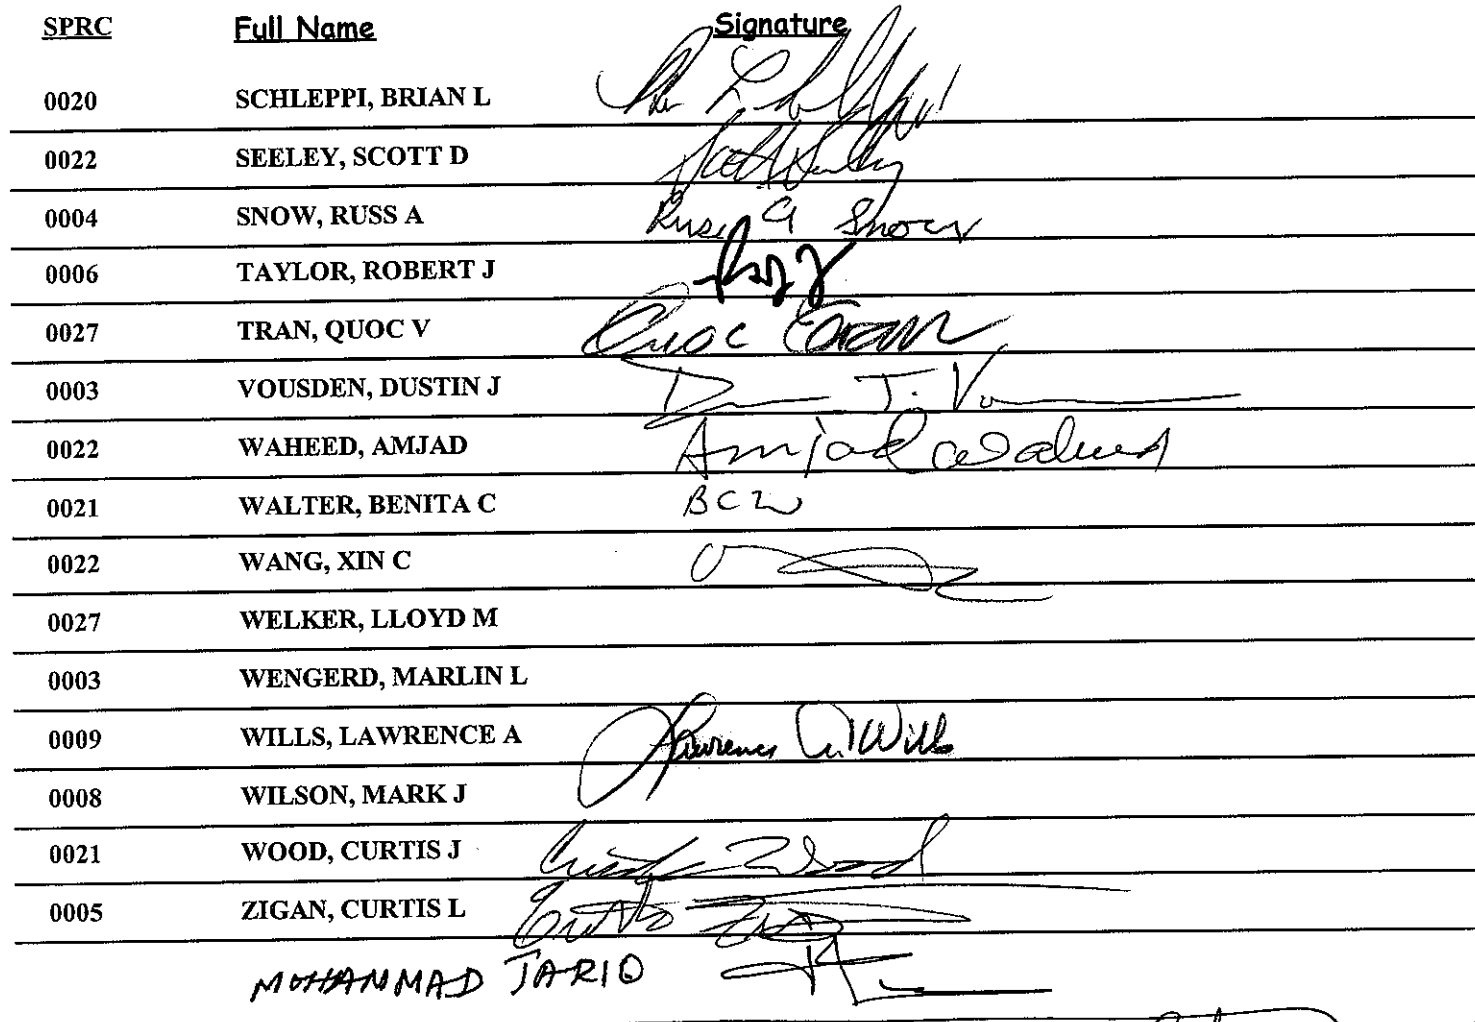 SPRC Full Name Signature
0020 SCHLEPPI, BRIAN L
0022 SEELEY, SCOTT D
0004 SNOW, RUSS A Russ A Snow
0006 TAYLOR, ROBERT J
0027 TRAN, QUOC V Quoc Tran
0003 VOUSDEN, DUSTIN J
0022 WAHEED, AMJAD Amjad Waheed
0021 WALTER, BENITA C BCW
0022 WANG, XIN C
0027 WELKER, LLOYD M
0003 WENGERD, MARLIN L
0009 WILLS, LAWRENCE A Lawrence A Wills
0008 WILSON, MARK J
0021 WOOD, CURTIS J Curtis Wood
0005 ZIGAN, CURTIS L Curtis
MOHAMMAD TARIQ